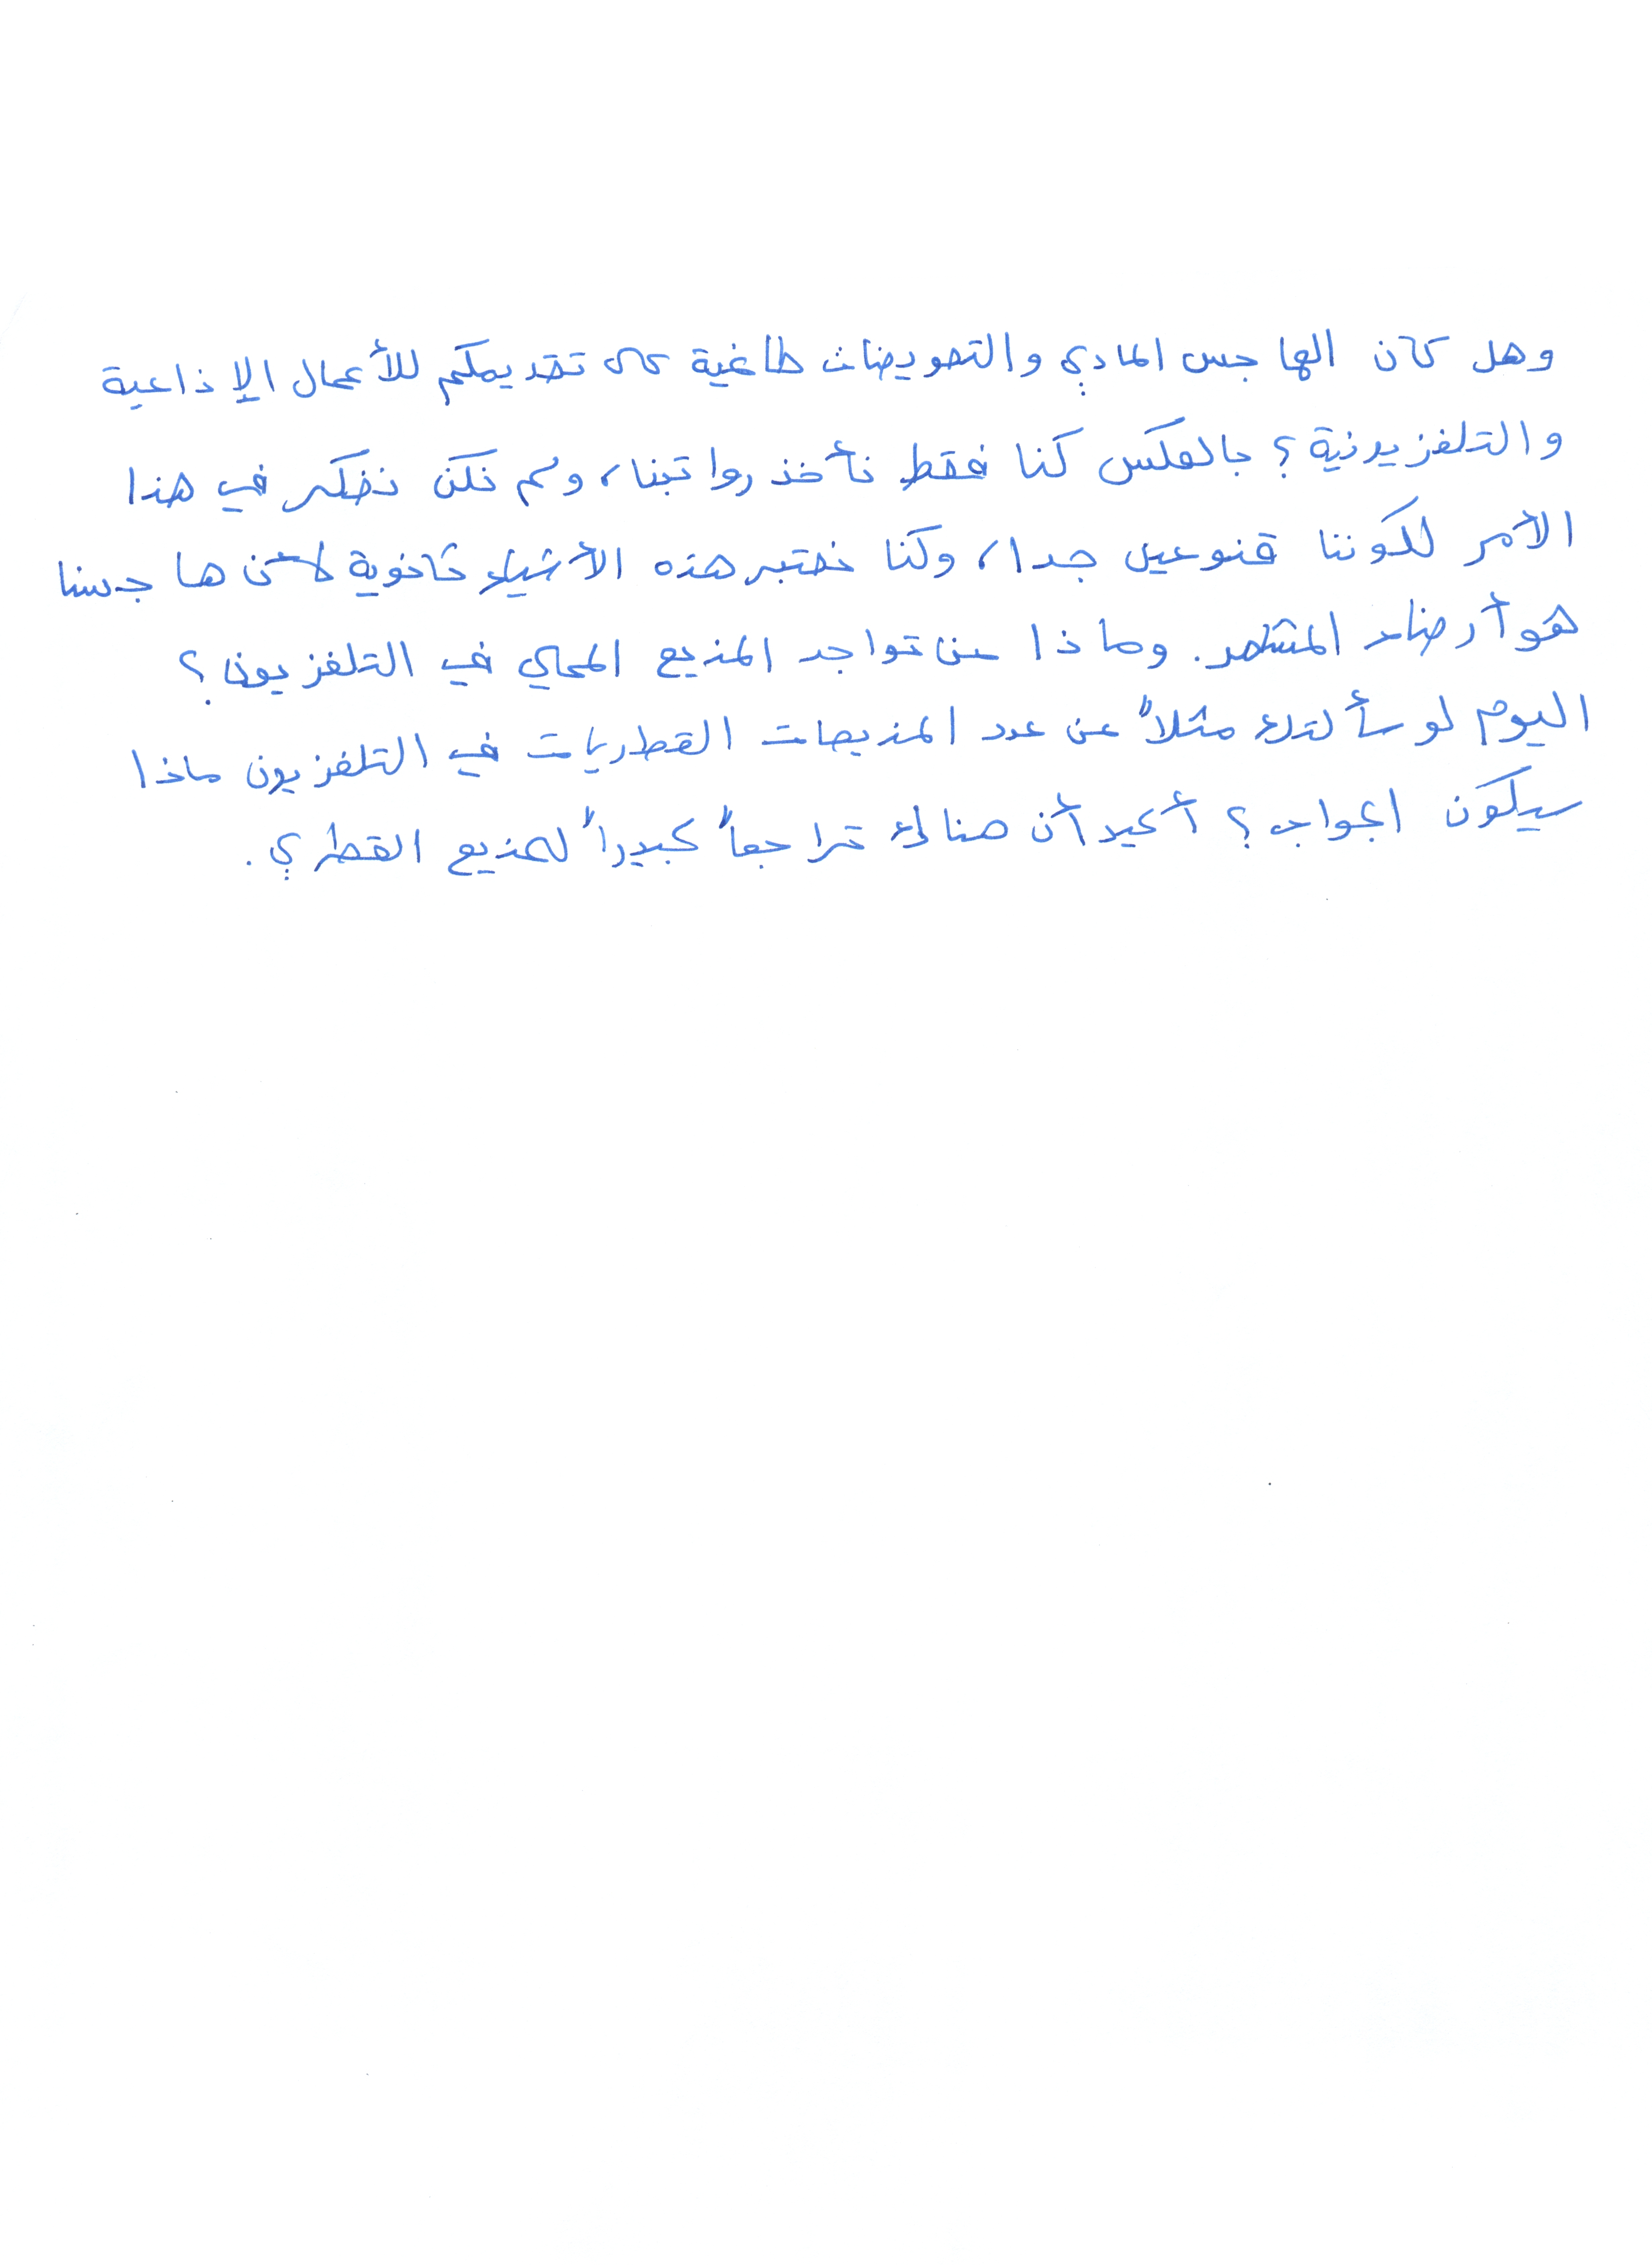 وهل كان الهاجس المادي والتعويضات طاغية على تقديمكم للأعمال الإذاعية
والتلفزيونية؟ بالعكس كنا فقط نأخذ رواتبنا، ولم نكن نفكر في هذا
الأمر لكوننا قنوعين جدا، وكنا نعتبر هذه الأشياء ثانوية لأن هاجسنا
هو أرضاء المشاهد. وماذا عن تواجد المذيع المحلي في التلفزيون؟
اليوم لو سألتك مثلاً عن عدد المذيعات القطريات في التلفزيون ماذا
سيكون الجواب؟ أكيد أن هناك تراجعاً كبيراً للمذيع القطري.